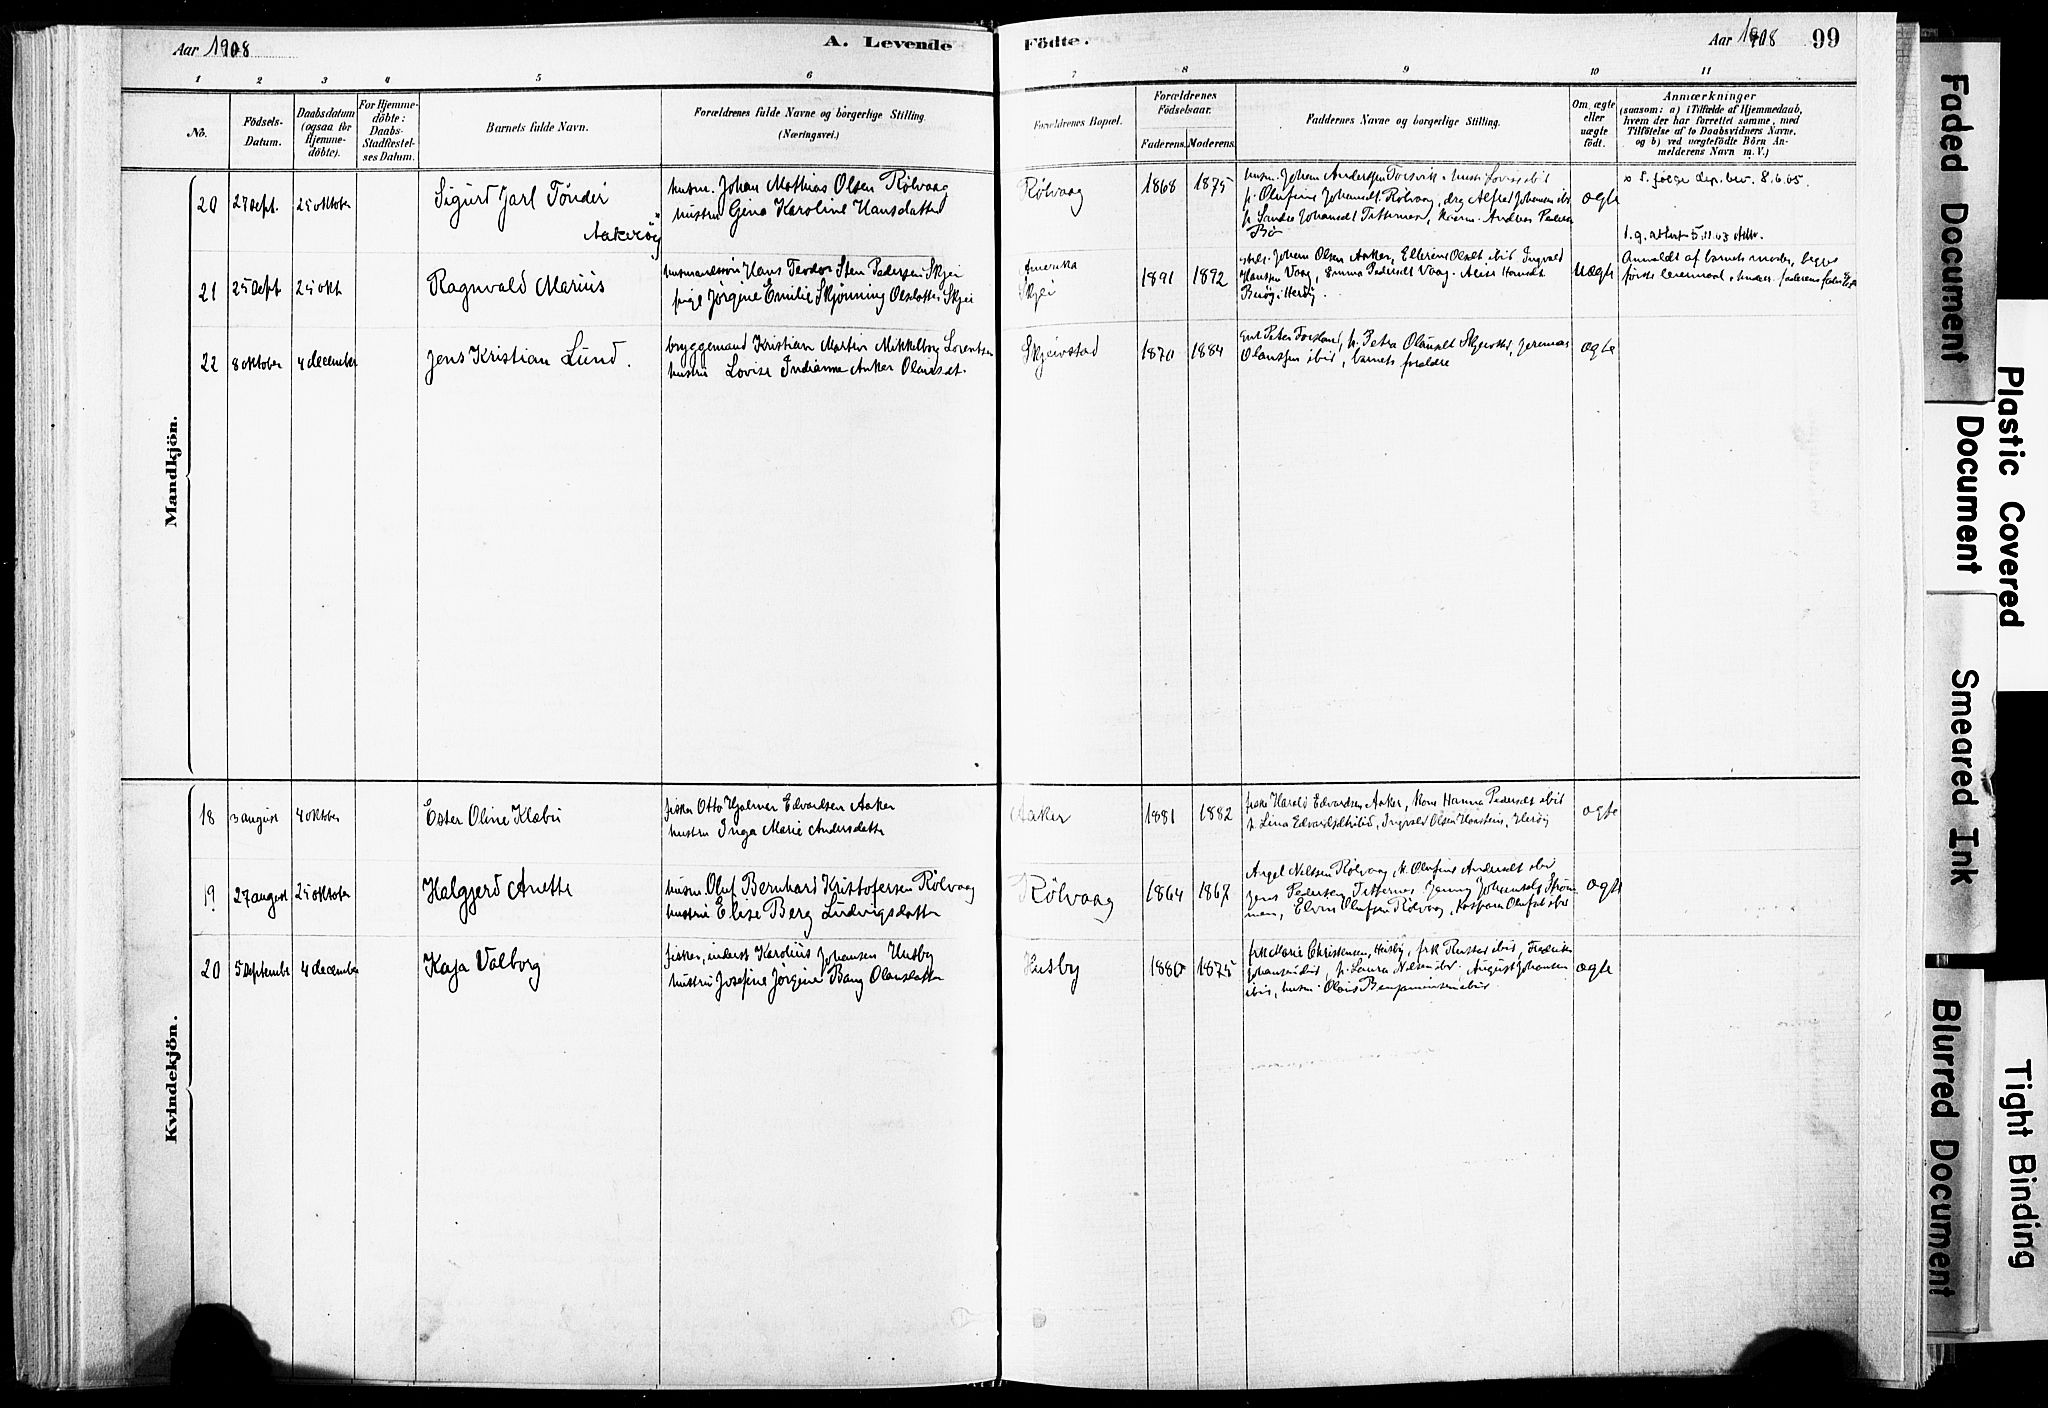 Aar 1908
A. Levende
Födte.
Aar 1908
99
1 2 3 4 5 6 7 8 9 10 11
No.
Födsels-
Datum.
Daabsdatum
(ogsaa for
Hjemme-
döbte).
For Hjemme-
döbte:
Daabs-
Stadfæstel-
ses Datum.
Barnets fulde Navn.
Forældrenes fulde Navne og borgerlige Stilling.
(Næringsvei.)
Forældrenes Bopæl.
Forældrenes
Födselsaar.
Faderens.
Moderens.
Faddernes Navne og borgerlige Stilling.
Om ægte
eller
uægte
født.
Anmærkninger
(saasom: a) i Tilfælde af Hjemmedaab,
hvem der har forrettet samme, med
Tilföielse af to Daabsvidners Navne,
og b) ved uægtefödte Börn An-
melderens Navn m. V.)
Mandkjön.
20 27 sept. 25 oktober
Sigurd Jarl Tönder
Aakerøy
husm. Johan Mathias Olsen Rølvaag
hustru Gina Karoline Hansdatter
Rølvaag 1868 1875
husm. Johan Anderssen
p. Olufine Johansdt. Rølvaag, drg Alfred Johansen ibid
p. Sandra Johansdt Tetternes, Andreas Pedersen
Bø
ægte
x S. følge dep. brev. 8.6.05.
21 25 sept 25 okt
Ragnvald Marius
husmandssön Hans Teodor Sten Pedersen Skjei
pige Jørgine Emilie Skjönning Olsdatter Skjei
Amerika
Skjei
1891 1892
Johan Olsen Aaker, Ellerine Olsdt ibid, Ingvald
Hanssen Vaag, Emma Pedersdt Vaag
i Herøy.
Uægte
Anmeldt af barnets moder, begges
første leiermaal
22 8 oktober 4 december
Jens Kristian Lund.
bryggemand Kristian Martin Mikkelborg Lorentsen
hustru Lovise Indianne Aaker Olausdt.
Skjeivstad 1870 1884
Peter Forsland, p. Petra Olausdt Skjeivstad, Jeremias
Olaussen ibid, barnets forældre
ægte
Kvindekjön.
18 3 august 4 oktober
Ester Oline Klæbu
fisker Otto Hjalmer Edvardsen Aaker
hustru Inga Marie Andersdatter
Aaker 1881 1882
fisker Harald Edvardsen Aaker, Kone Hanna Pedersdt ibid
p. Lina Edvardsdt ibid, Ingvald Olsen Herøy
ægte
19 27 august 25 oktober
Halgjerd Anette
husm. Oluf Bernhard Kristofersen Rølvaag
hustru Elise Berg Ludvigsdatter
Rølvaag 1864 1867
Angel Nilsen Rølvaag, k. Olufine Andersdt ibid
Jens Pedersen Tetternes, Jenny Johansdt Strøm-
men, Elvin Olufsen Rølvaag, Kaspara Olufsdt ibid
ægte
20 5 September 4 december
Kaja Valborg
fisker, inderst Karolius Johansen Husby
hustru Josefine Jørgine Bang Olausdatter
Husby 1880 1875
frk Marie Christensen, Husby, frk ibid, Fredrik
Johansen ibid, p. Laura Nilsen ibid, August Johansen
ibid, husm. Olais Benjaminsen ibid
ægte
Faded Document
Plastic Covered
Document
Smeared Ink
Blurred Document
Tight Binding